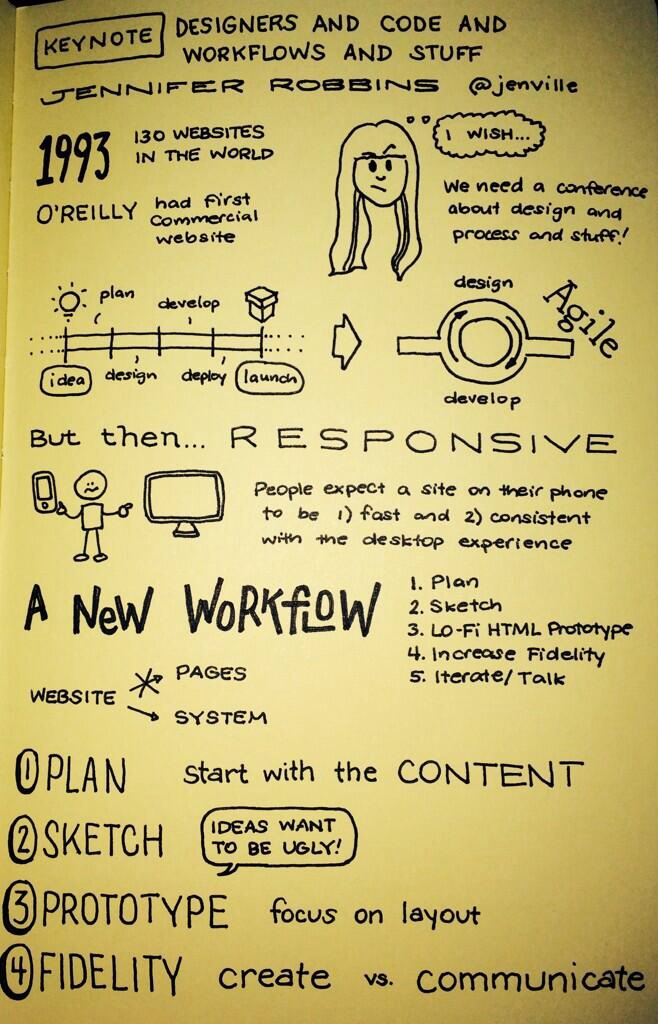 KEYNOTE
DESIGNERS AND CODE AND
WORKFLOWS AND STUFF
JENNIFER ROBBINS @jenville
1993
130 WEBSITES
IN THE WORLD
I WISH...
O'REILLY had first
commercial
website
We need a conference
about design and
process and stuff!
plan
develop
idea
design
deploy
launch
design
Agile
develop
But then... RESPONSIVE
People expect a site on their phone
to be 1) fast and 2) consistent
with the desktop experience
A NEW WORKFLOW
1. Plan
2. Sketch
3. LO-Fi HTML Prototype
4. Increase Fidelity
5. Iterate/Talk
WEBSITE
PAGES
SYSTEM
1 PLAN start with the CONTENT
2 SKETCH
IDEAS WANT
TO BE UGLY!
3 PROTOTYPE focus on layout
4 FIDELITY create vs. communicate